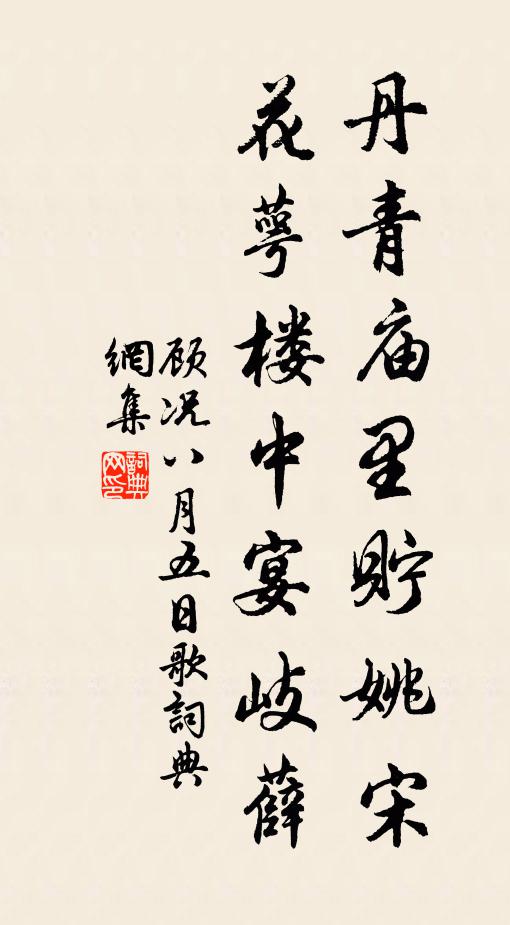 丹青庙里贮姚宋
花萼楼中宴岐薛
顾况八月五日歌詞典
網集
詞典網印